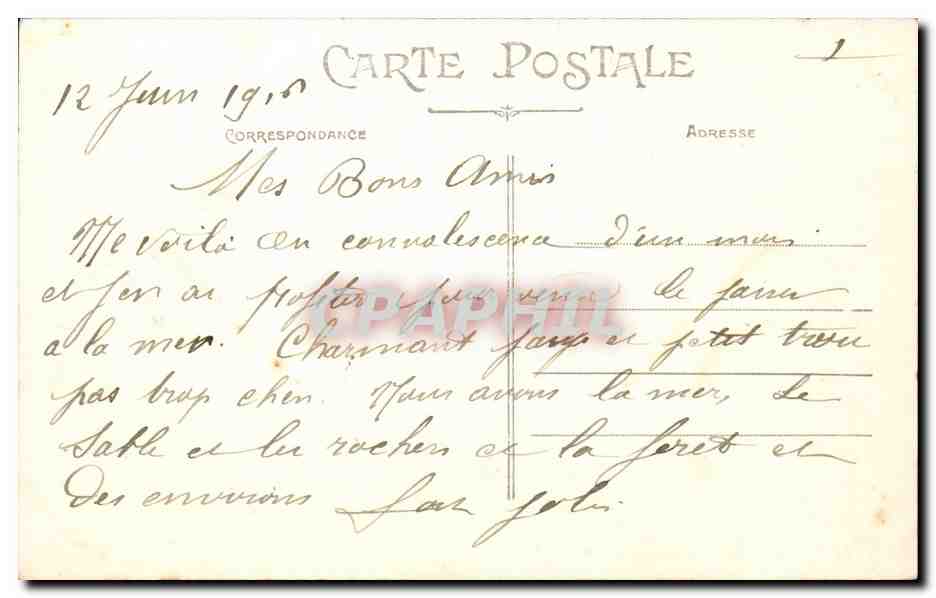 CARTE POSTALE
1
12 Juin 19
CORRESPONDANCE
ADRESSE
Mes Bons Amis
Me voilà en convalescence d'un mois
et j'en ai profiter pour venir le passer
a la mer. Charmant pays et petit trou
pas trop cher. Nous avons la mer, le
sable et les rochers et la foret et
des environs fort jolis
CPAPHIL